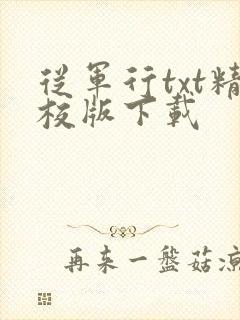 從軍行txt精
校版下載
再来一盤菇凉